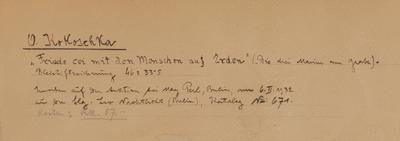 O. Kokoschka
„Friede sei mit den Menschen auf Erden" (Die drei Marien am Grabe).
Bleistiftzeichnung 46 x 33·5
auf der Auktion bei Max Perl, Berlin, am 6. II. 1932
aus der Slg. Leo Nachtlicht (Berlin), Katalog № 671.
Kosten: RM. 57.-